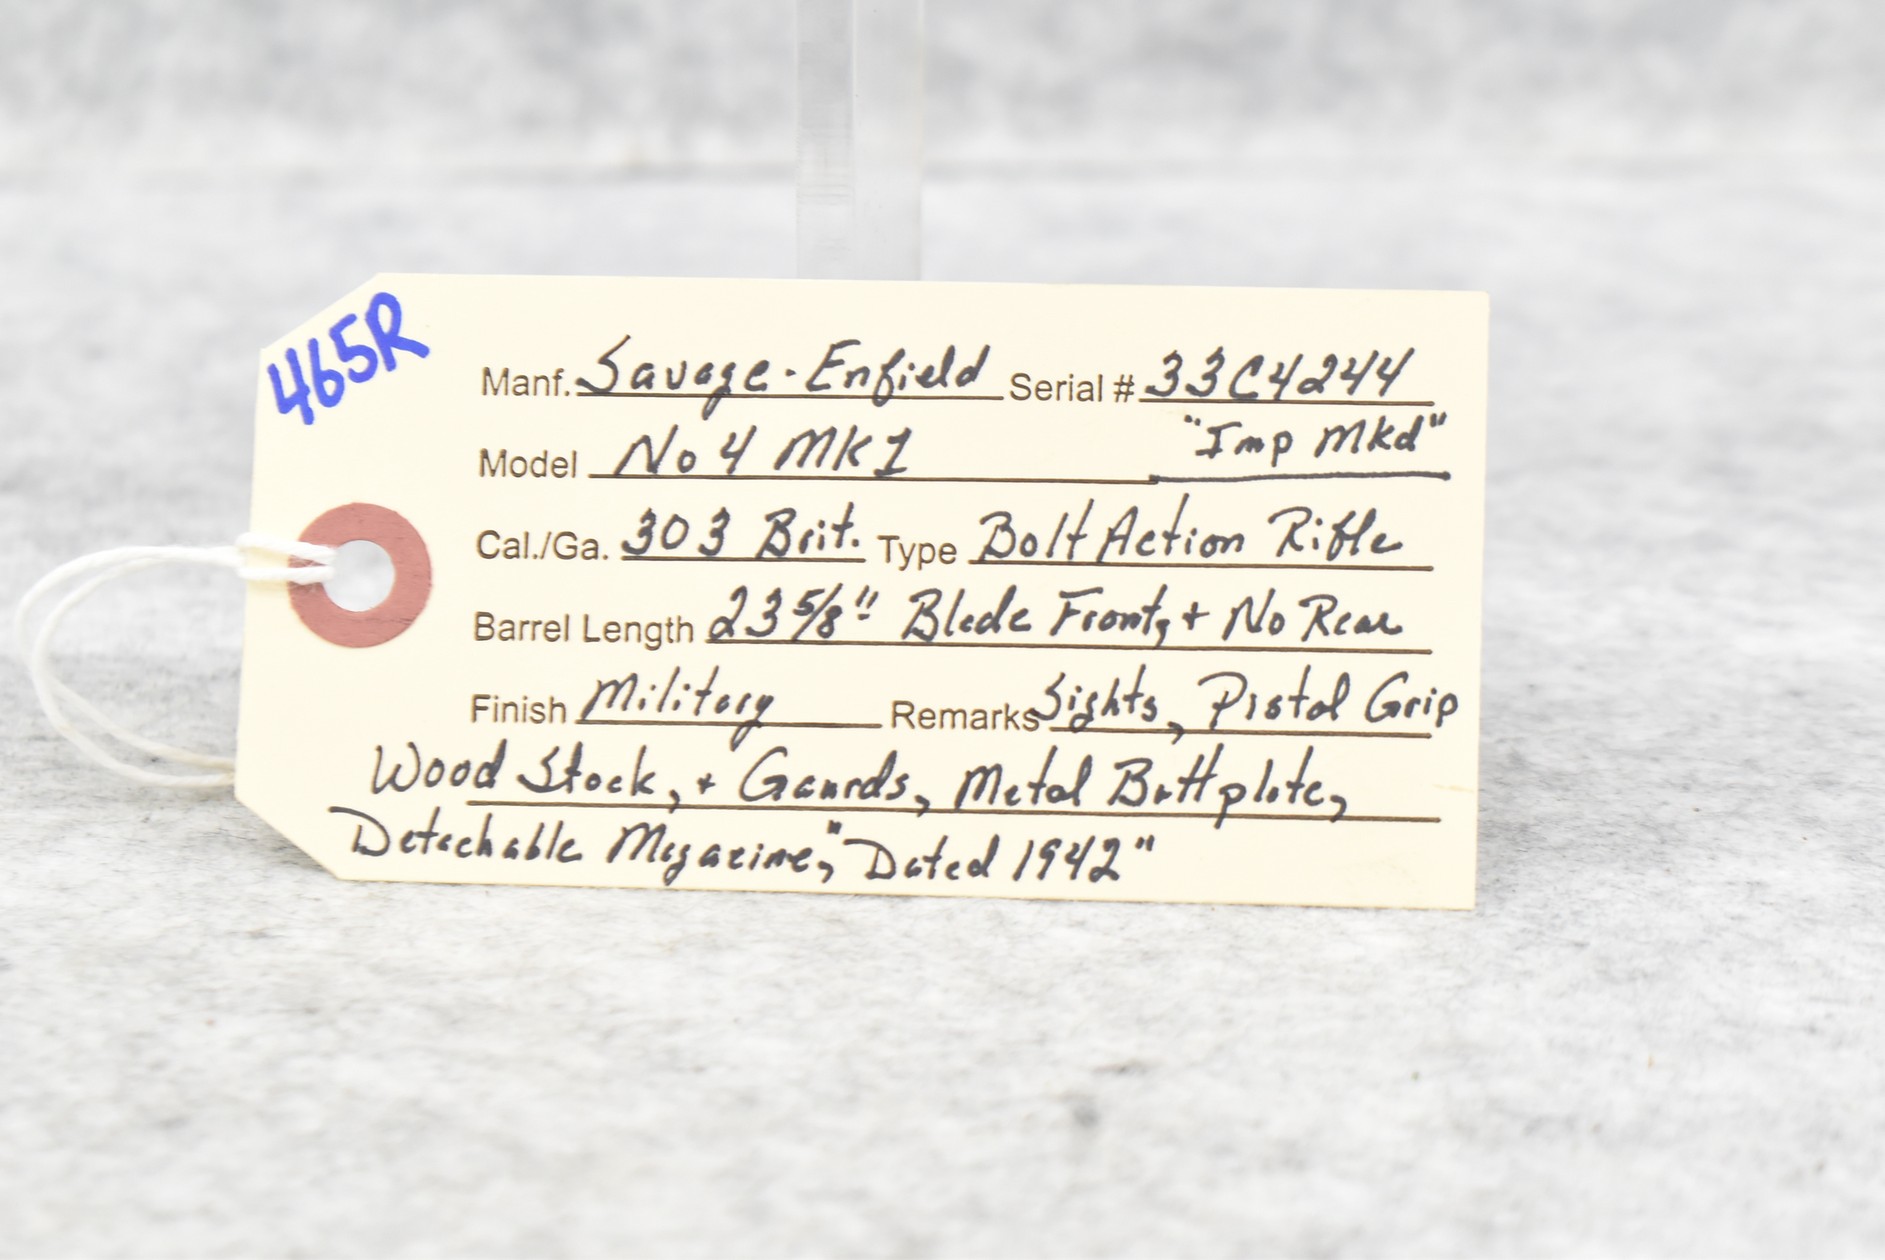 465R
Manf. Savage-Enfield Serial # 33C4244
Model No 4 MK1 "Imp Mkd"
Cal./Ga. 303 Brit. Type Bolt Action Rifle
Barrel Length 23 5/8" Blade Front, + No Rear
Finish Military Remarks Sights, Pistol Grip
Wood Stock, + Gaurds, Metal Buttplate,
Detachable Magazine, "Dated 1942"